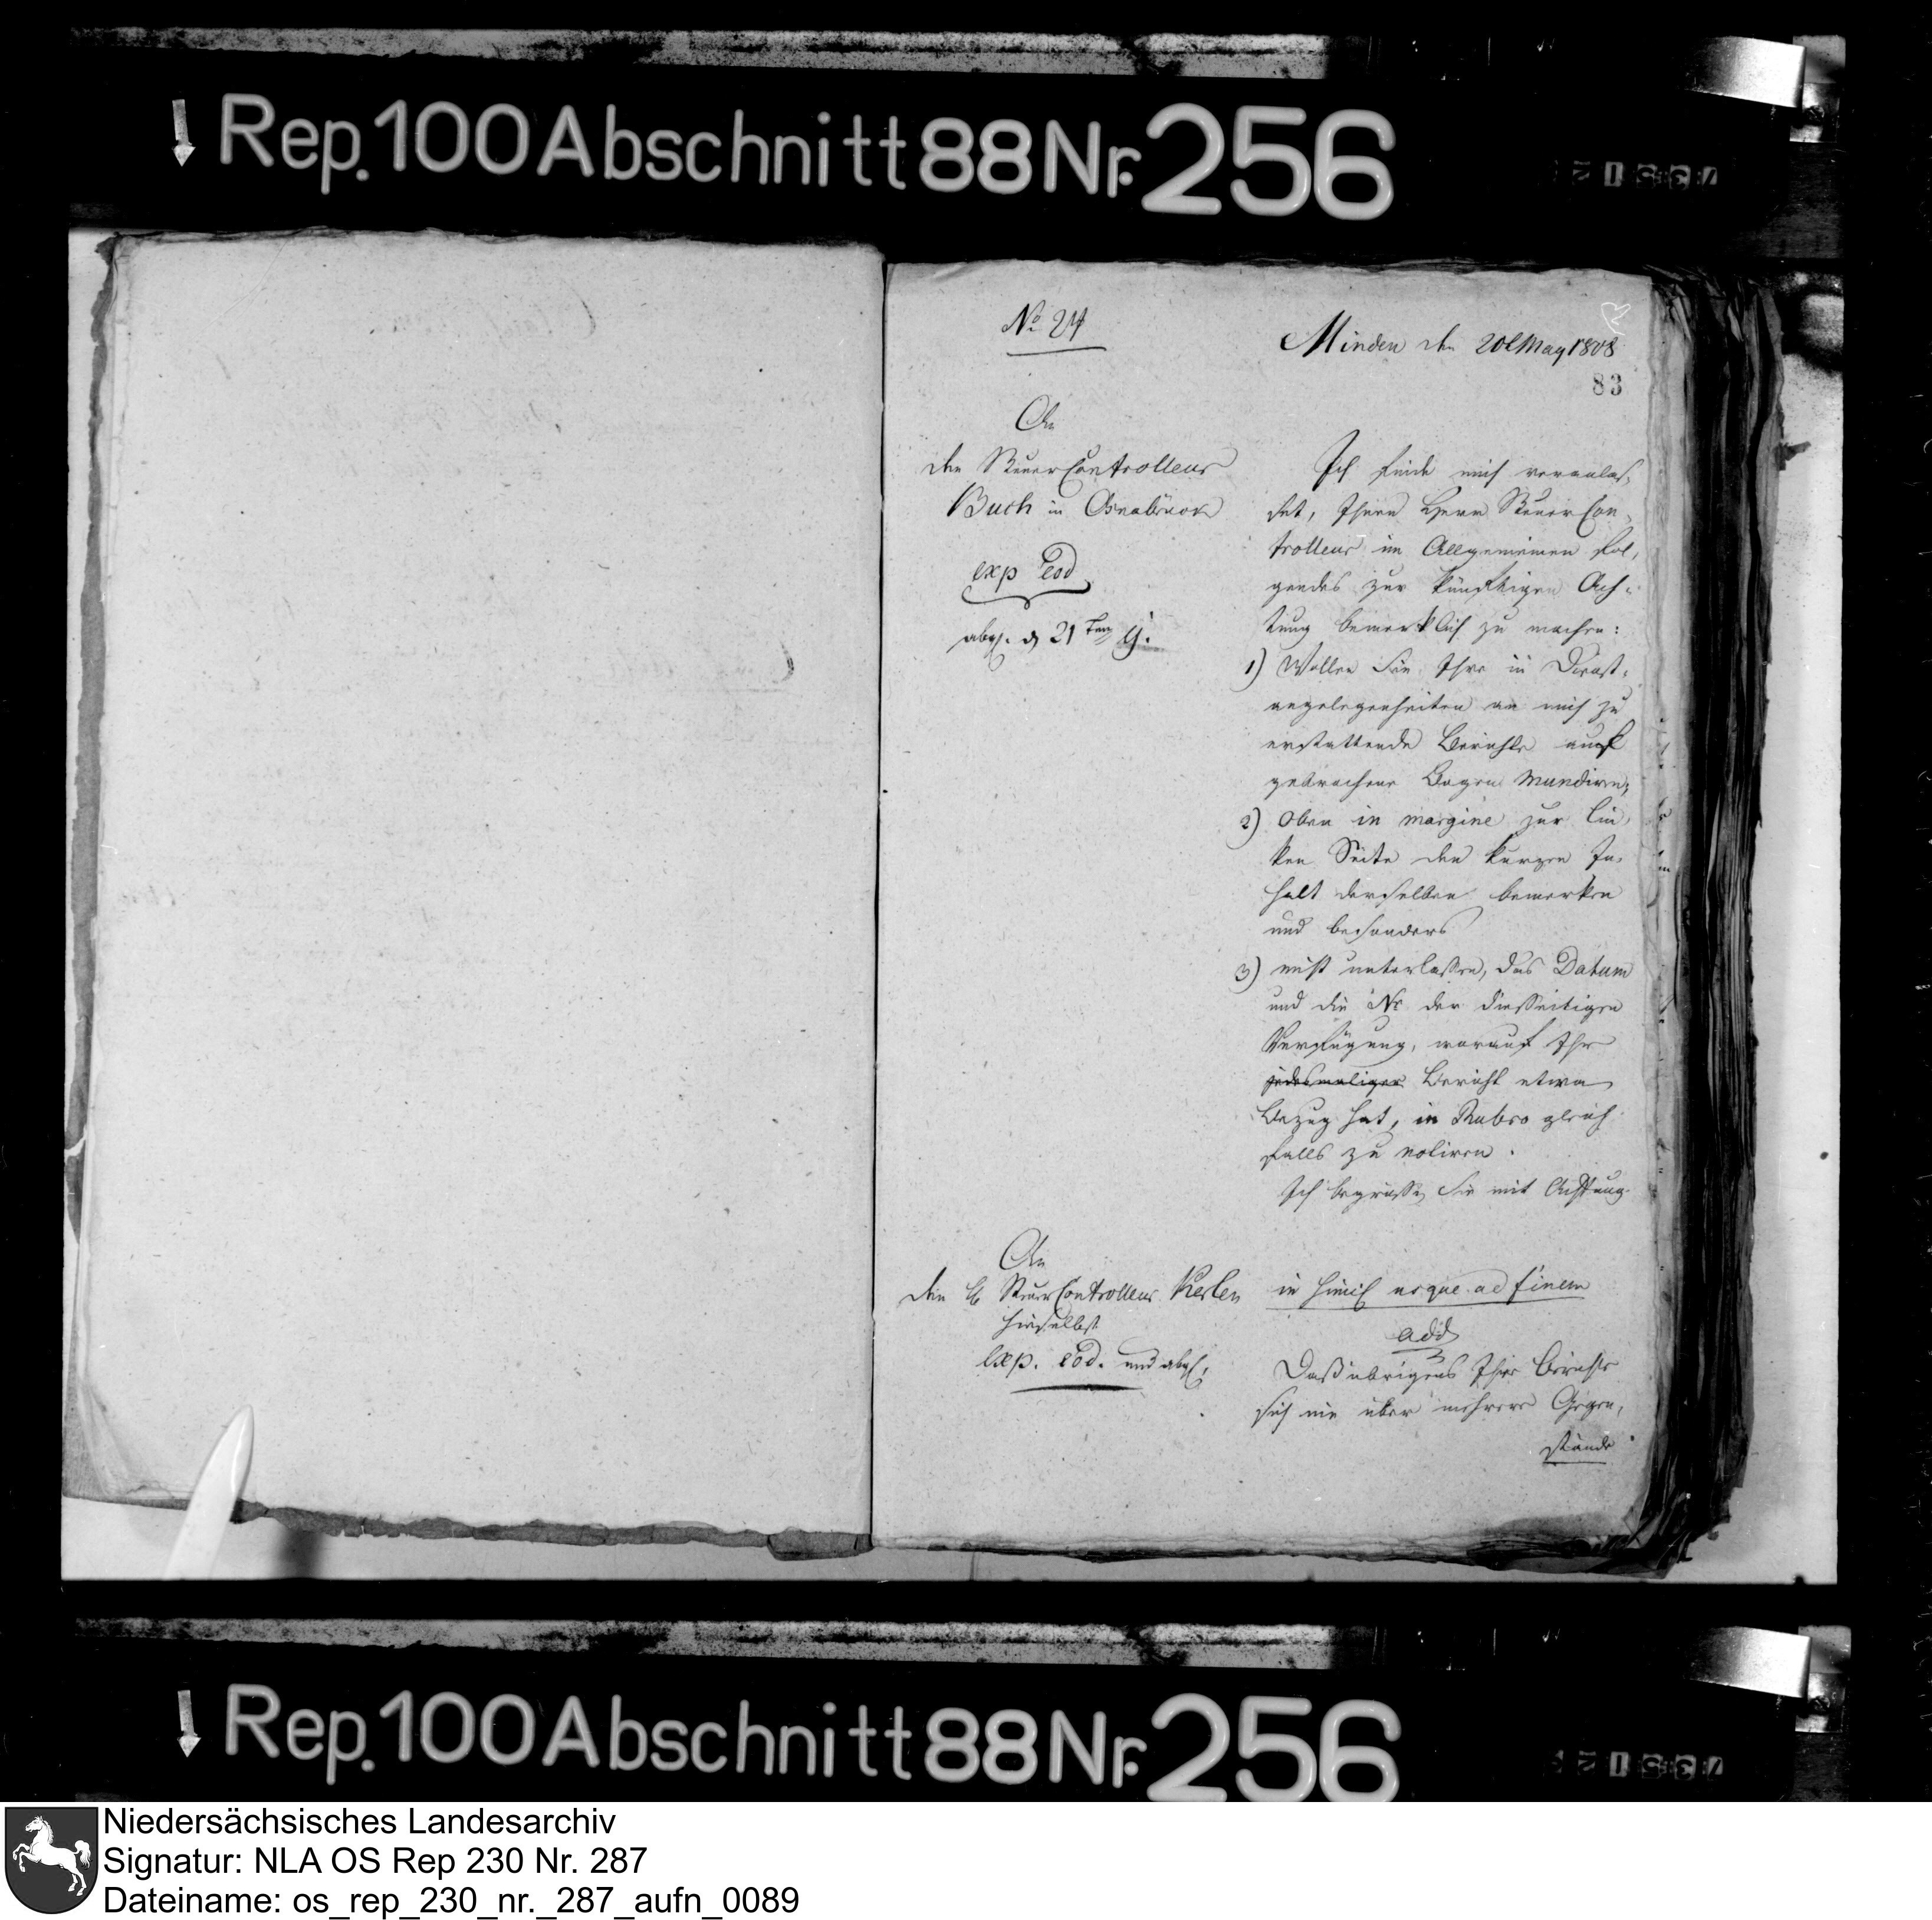 Rep. 100 Abschnitt 88 Nr. 256
No 24
Minden den 20t May 1808
83
An
den SteuerControlleur
Buch in Osnabrück
exp eod
abgs. d 21ten
Ich finde mich veranlas,
set, Ihnen Herr SteuerCon,
trolleur im Allgemeinen fol,
gendes zur künftigen Ach,
tung bemerklich zu machen:
1) Wollen Sie Ihre in Dienst,
angelegenheiten an mich zu
erstattende Berichte auf
gebrochene Bogen mundiren,
2) oben in margine zur lin,
ken Seite den kurzen In,
halt derselben bemerken
und besonders
3) nicht unterlassen, das Datum
und die No der diesseitigen
Verfügung, worauf Ihr
jedesmaliger Bericht etwa
Bezug hat, in Rubro gleich
falls zu notiren.
Ich begrüsse Sie mit Achtung.
An
den SteuerControlleur Kerlen
hieselbst
exp. eod. und abgs.
in simil usque ad finem
add
Daß übrigens Ihre Berichte
sich nie über mehrere Gegen,
stände
Rep. 100 Abschnitt 88 Nr. 256
Niedersächsisches Landesarchiv
Signatur: NLA OS Rep 230 Nr. 287
Dateiname: os_rep_230_nr._287_aufn_0089